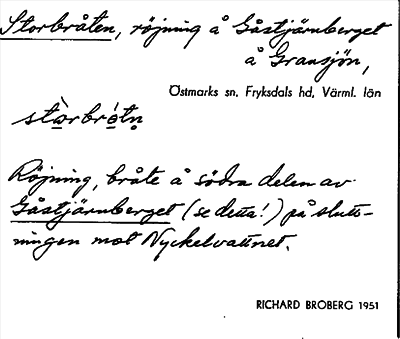 Storbråten, röjning å Gåstjärnberget
å Gransjön,
Östmarks sn, Fryksdals hd, Värml. län
stòrbrótn̥
Röjning, bråte å södra delen av
Gåstjärnberget (se detta!) på slutt-
ningen mot Nyckelvattnet.
RICHARD BROBERG 1951